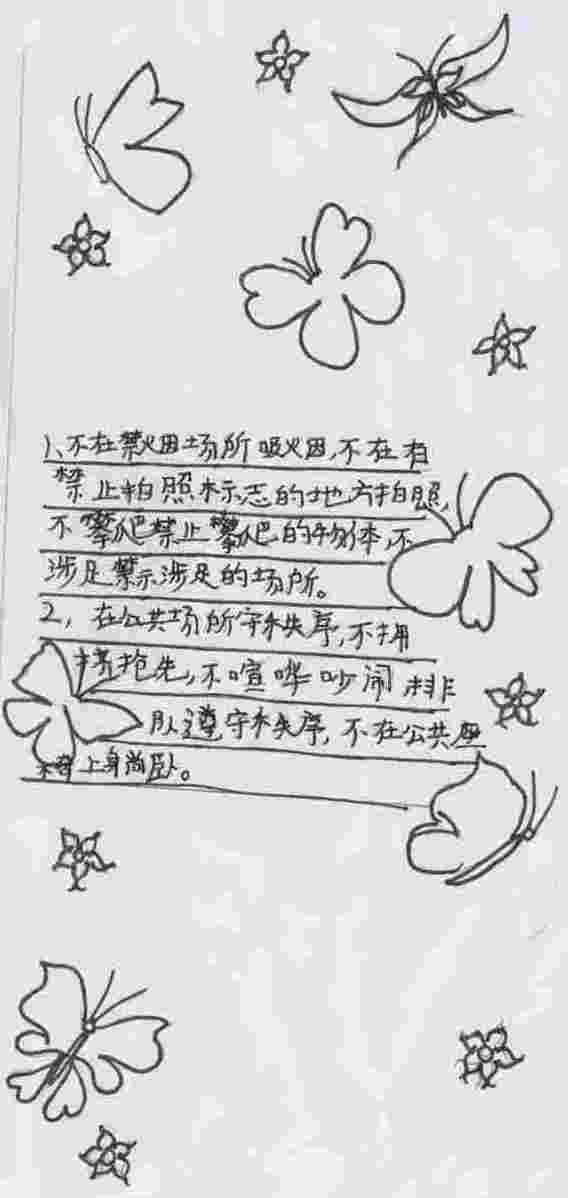 1、不在禁烟场所吸烟,不在有
禁止拍照标志的地方拍照,
不攀爬禁止攀爬的物体,不
涉足禁示涉足的场所。
2,在公共场所守秩序,不拥
挤抢先,不喧哗吵闹排
队遵守秩序,不在公共座
椅上躺卧。